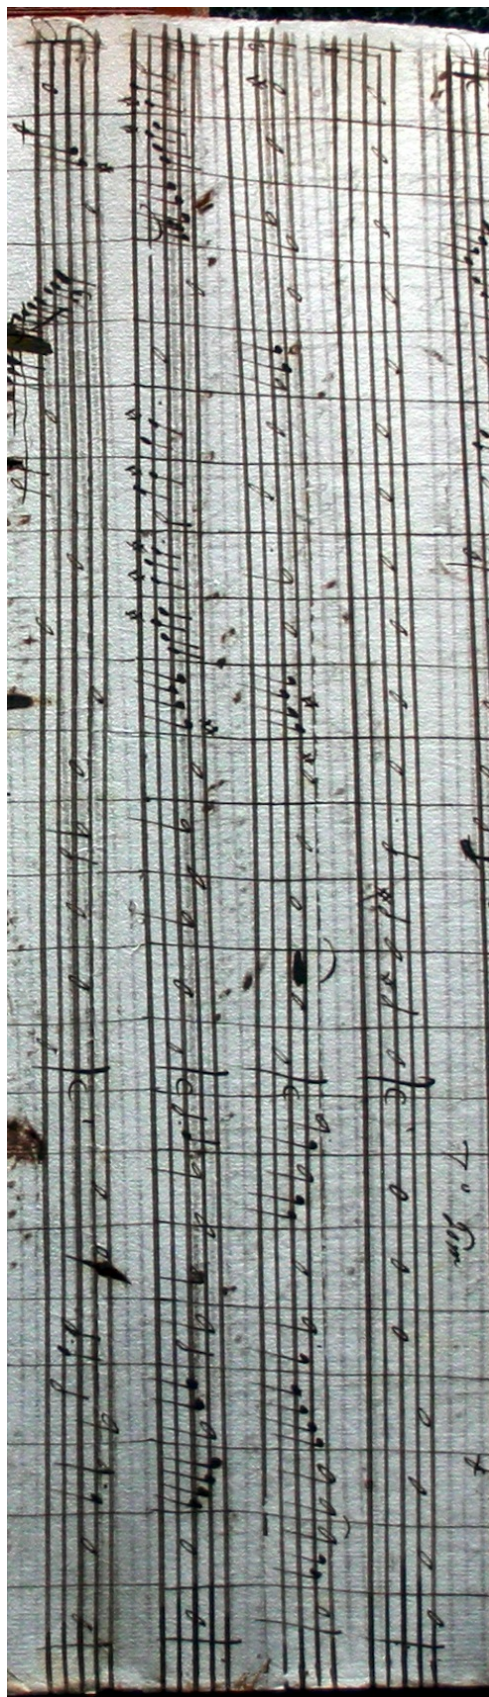 7º Tom